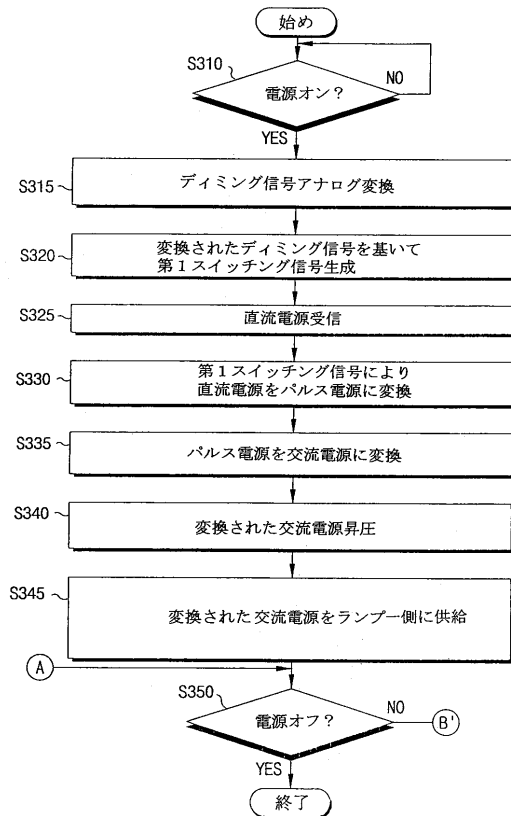 始め
S310
電源オン？
NO
YES
S315
ディミング信号アナログ変換
S320
変換されたディミング信号を基いて
第１スイッチング信号生成
S325
直流電源受信
S330
第１スイッチング信号により
直流電源をパルス電源に変換
S335
パルス電源を交流電源に変換
S340
変換された交流電源昇圧
S345
変換された交流電源をランプー側に供給
A
S350
電源オフ？
NO
B'
YES
終了